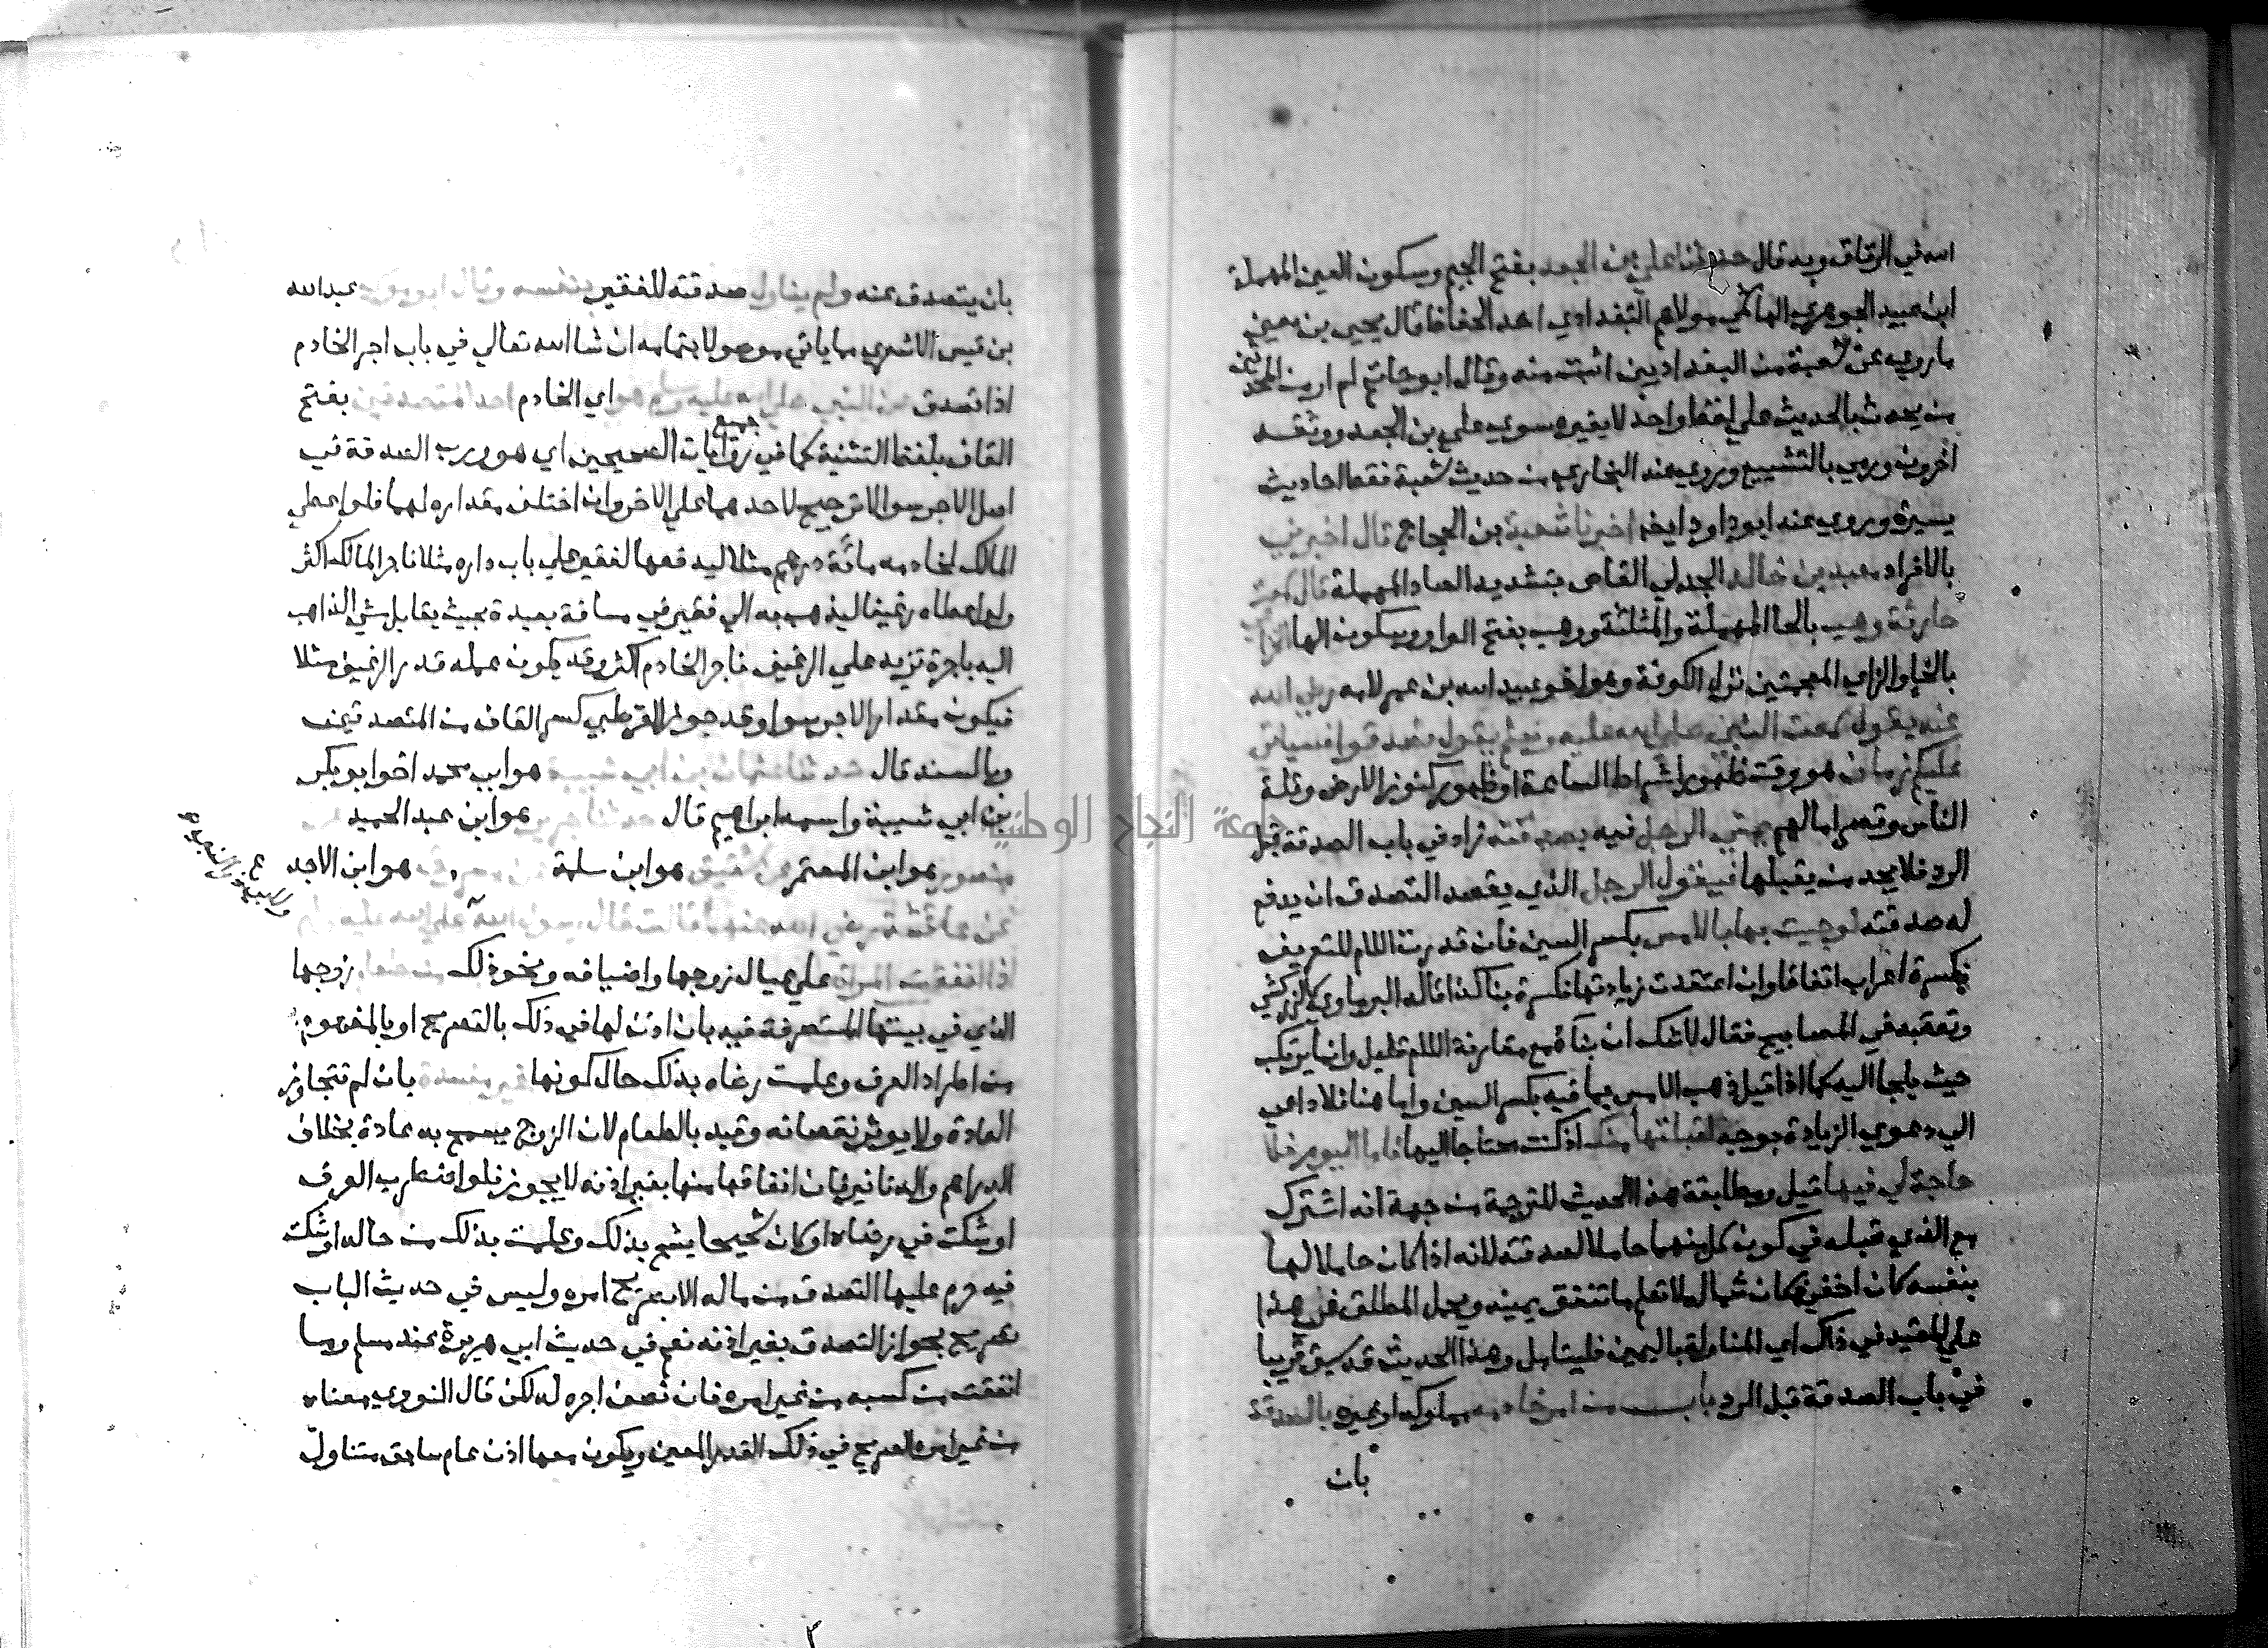 الله في الرقاق وبه قال حدثنا علي بن الجعد بفتح الجيم وسكون العين المهملة
ابن عبيد الجوهري الهاشمي مولاهم البغدادي احد الحفاظ قال يحيى بن معين
ما روي عن شعبة من البغداديين اثبت منه وقال ابو حاتم لم ار من المحدثين
من يحدث بالحديث علي لفظ واحد لا يغيره سوي علي بن الجعد ووثقه
اخرون ورمي بالتشيع وروي عنه البخاري من حديث شعبة فقط احاديث
يسيرة وروي عنه ابو داود ايضا اخبرنا شعبة بن الحجاج قال اخبرني
بالافراد معبد بن خالد الجدلي القاص بتشديد الصاد المهملة قال سمعت
حارثة وهب بالحا المهملة والمثلثة ووهب بفتح الواو وسكون الها الخزاعي
بالخا والزاي المعجمتين نزل الكوفة وهو اخو عبيد الله بن عمر لامه رضي الله
عنه يقول سمعت النبي صلى الله عليه وسلم يقول تصدقوا فسياتي
عليكم زمان هو وقت ظهور اشراط الساعة او ظهور كنوز الارض وقلة
الناس وقصر امالهم يمشي الرجل فيه بصدقته زاد في باب الصدقة قبل
الرد فلا يجد من يقبلها فيقول الرجل الذي يقصد التصدق ان يدفع
له صدقته لو جيت بها بالامس بكسر السين فان قدرت اللام للتعريف
فكسرة اعراب اتفاقا وان اعتقدت زيادتها فكسرة بنا كذا قاله البرماوي كالزركشي
وتعقبه في المصابيح فقال لا شك ان بناه مع مقارنة اللام قليل وانما يرتكب
حيث يلجا اليه كما اذا قيل ذهب الامس بما فيه بكسر السين واما هنا فلا داعي
الي دعوي الزيادة بوجه لقبلتها منك اذ كنت محتاجا اليها فاما اليوم فلا
حاجة لي فيها قيل ومطابقة هذا الحديث للترجمة من جهة انه اشترك
مع الذي قبله في كون كل منهما حاملا لصدقته لانه اذا كان حاملا لها
بنفسه كان اخفي فكان شماله لا تعلم ما تنفق يمينه ويحمل المطلق في هذا
علي المقيد في ذاك اي المناولة باليمين فليتامل وهذا الحديث قد سبق قريبا
في باب الصدقة قبل الرد باب من امر خادمه مملوكه او غيره بالصدقة
بان
بان يتصدق عنه ولم يناول صدقته للفقير بنفسه وقال ابو موسي عبد الله
بن قيس الاشعري مما ياتي موصولا بتمامه ان شا الله تعالي في باب اجر الخادم
اذا تصدق عن النبي صلى الله عليه وسلم هو اي الخادم احد المتصدقين بفتح
القاف بلفظ التثنية كما في جميع روايات الصحيحين اي هو ورب الصدقة في
اصل الاجر سوا لا ترجيح لاحدهما علي الاخر وان اختلف مقداره لهما فلو اعطي
المالك لخادمه مائة درهم مثلا ليدفعها لفقير علي باب داره مثلا فاجر المالك اكثر
ولو اعطاه رغيفا ليذهب به الي فقير في مسافة بعيدة بحيث يقابل مشي الذاهب
اليه باجرة تزيد علي الرغيف فاجر الخادم اكثر وقد يكون عمله قدر الرغيف مثلا
فيكون مقدار الاجر سوا وقد جوز القرطبي كسر القاف من المتصدقين
وبالسند قال حدثنا عثمان بن ابي شيبة هو ابن محمد اخو ابو بكر
بن ابي شيبة واسمه ابراهيم قال حدثنا جرير هو ابن عبد الحميد
منصور هو ابن المعتمر عن شقيق هو ابن سلمة هو ابن الاجدع
عن عائشة رضي الله عنها قالت قال رسول الله صلى الله عليه وسلم
اذا انفقت المراة علي عيال زوجها واضيافه ونحو ذلك من طعام زوجها
الذي في بيتها المتصرفة فيه بان اذن لها في ذلك بالتصريح او بالمفهوم
من اطراد العرف وعلمت رضاه بذلك حال كونها غير مفسدة بان لم تتجاوز
العادة ولا يوثر نقصانه وقيد بالطعام لان الزوج يسمح به عادة بخلاف
الدراهم والدنانير فان انفاقها منها بغير اذنه لا يجوز فلو اضطرب العرف
او شكت في رضاه او كان شحيحا يشح بذلك وعلمت بذلك من حاله او شكت
فيه حرم عليها التصدق من ماله الا بصريح امره وليس في حديث الباب
تصريح بجواز التصدق بغير اذنه نعم في حديث ابي هريرة عند مسلم وما
انفقت من كسبه من غير امره فان نصف اجره له لكن قال النووي معناه
من غير امره الصريح في ذلك القدر المعين ويكون معها اذن عام سابق متناول
جامعة النجاح الوطنية